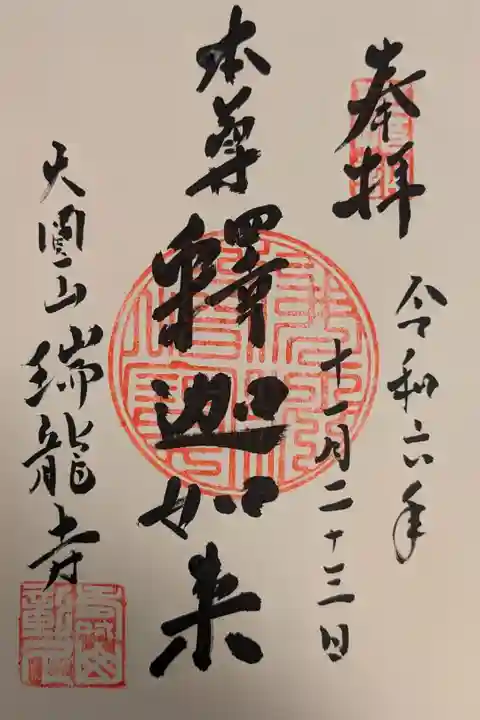 奉拝
令和六年
十一月二十三日
本尊釋迦如来
天圓山瑞龍寺